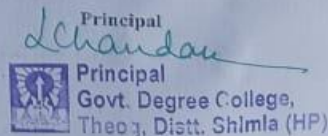 Principal
Lchandan
Principal
Govt. Degree College,
Theog, Distt. Shimla (HP)